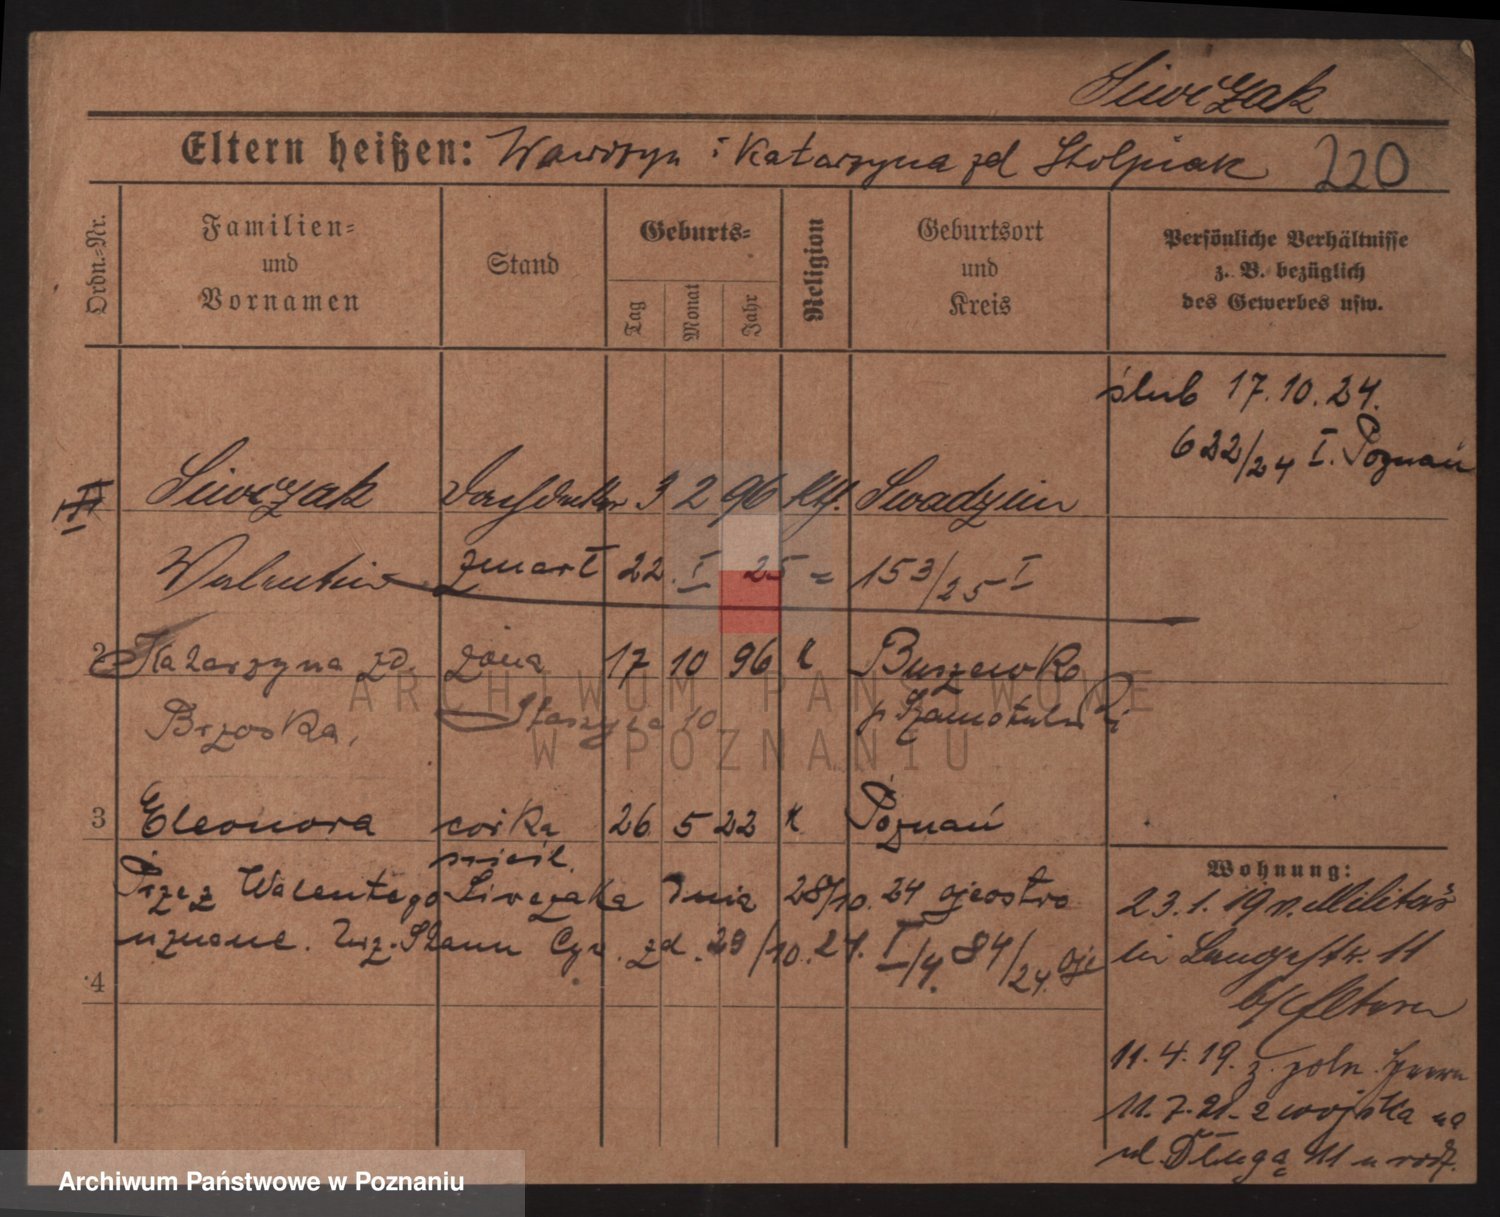 Siwczak
Eltern heißen: Wawrzyn i Katarzyna zd Stolpiak 220
Ordn.-Nr.
Familien- und Vornamen
Stand
Geburts-
Tag
Monat
Jahr
Religion
Geburtsort und Kreis
Persönliche Verhältnisse
z. B. bezüglich
des Gewerbes usw.
ślub 17.10.24.
622/24 I. Poznań
Siwczak Dachdecker 3 2 96 kth. Swadzim
Valentin zmarł 22. I 25 = 153/25 I
2 Katarzyna zd. żona 17 10 96 k Buszewko
Brzoska, p. Szamotuły
3 Eleonora córka 26 5 22 k Poznań
Przez Walentego Siwczaka dnia 28/10. 24 ojcostwo
uznane. Urz. Stanu Cyw. zd. 29/10. 24. I/4. 84/24.
4
Wohnung:
23.1.19 v. Militär
in Langestr. 11
b/ Eltern
11.4.19. z. poln.
11.7.21. z wojska na
ul. Długą 11 u rodz.
ARCHIWUM PAŃSTWOWE
W POZNANIU
Archiwum Państwowe w Poznaniu